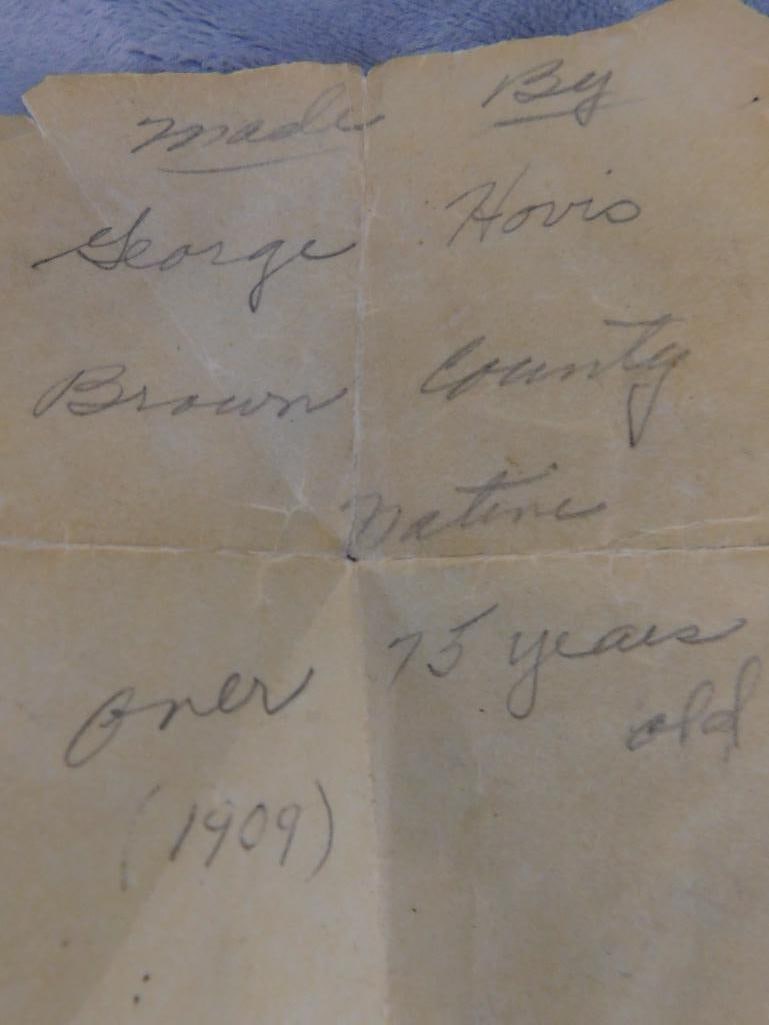 Made By
George Hovis
Brown County
Native
Over 75 years
old
(1909)